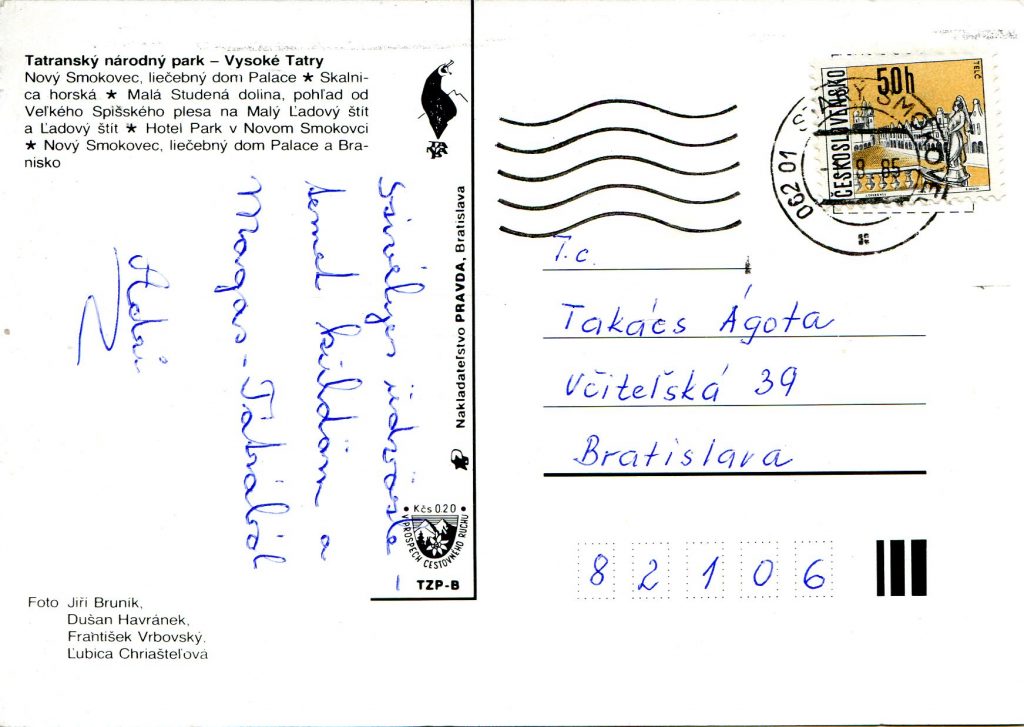 Tatranský národný park – Vysoké Tatry
Nový Smokovec, liečebný dom Palace ★ Skalni-
ca horská ★ Malá Studená dolina, pohľad od
Veľkého Spišského plesa na Malý Ľadový štít
a Ľadový štít ★ Hotel Park v Novom Smokovci
★ Nový Smokovec, liečebný dom Palace a Bra-
nisko
Szívélyes üdvözle-
temet küldöm a
Magas-Tátrából
Nakladateľstvo PRAVDA, Bratislava
Kčs 0.20
V PROSPECH CESTOVNÉHO RUCHU
TZP-B
Foto Jiří Bruník,
Dušan Havránek,
František Vrbovský,
Ľubica Chriašteľová
ČESKOSLOVENSKO
50h
TELČ
062 01 STARÝ SMOKOVEC
8 85
T.c.
Takács Ágota
Učiteľská 39
Bratislava
82106